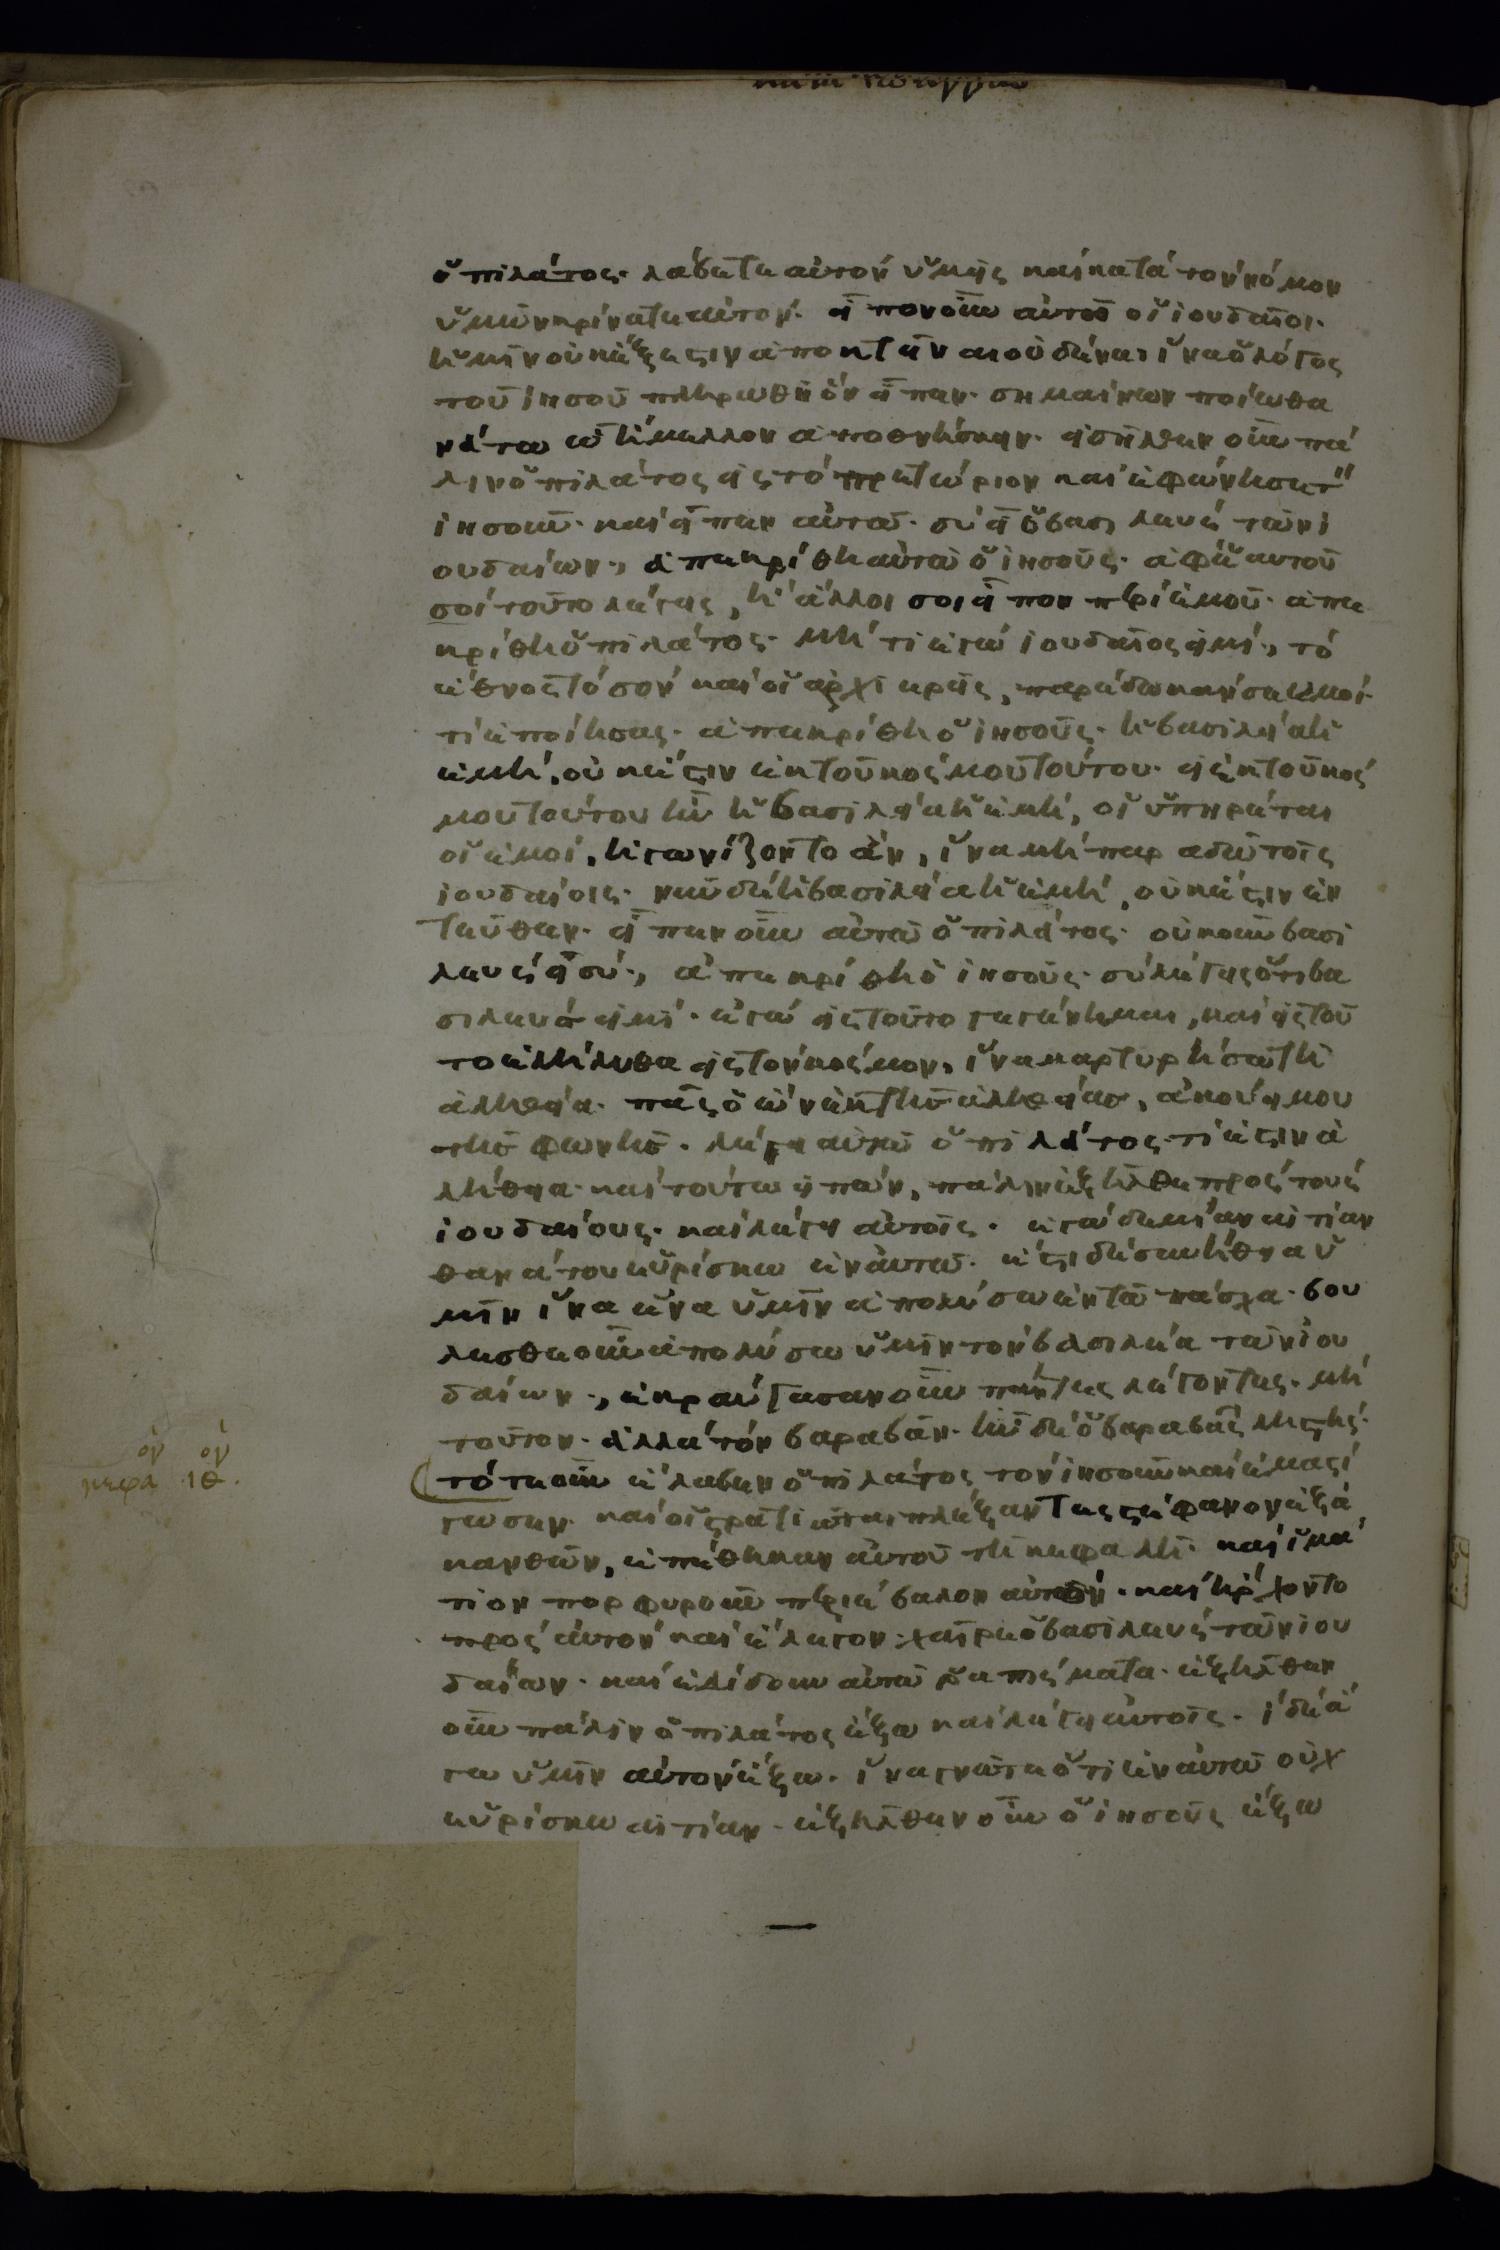 κατα ιωαννην
ὁ πιλάτος· λάβετε αὐτὸν ὑμεῖς καὶ κατὰ τὸν νόμον
ὑμῶν κρίνατε αὐτόν· εἶπον οὖν αὐτῷ οἱ ἰουδαῖοι·
ἡμῖν οὐκ ἔξεστιν ἀποκτεῖναι οὐδένα· ἵνα ὁ λόγος
τοῦ ἰησοῦ πληρωθῇ ὃν εἶπεν· σημαίνων ποίω θα
νάτω ἤμελλον ἀποθνήσκειν· εἰσῆλθεν οὖν πά
λιν ὁ πιλάτος εἰς τὸ πρετώριον καὶ ἐφώνησε τ̈
ἰησοῦν· καὶ εἶπεν αὐτῶ· σὺ εἶ ὁ βασιλεὺς τῶν ἰ
ουδαίων., ἀπεκρίθη αὐτῶ ὁ ἰησοῦς· ἀφ' ἑαυτοῦ
σοὶ τοῦτο λέγεις, ἢ ἄλλοι σοι εἶπον περὶ ἐμοῦ· ἀπε
κρίθη ὁ πιλάτος· μή τι ἐγὼ ἰουδαῖος εἰμί., τὸ
ἔθνος τὸ σὸν καὶ οἱ ἀρχιερεῖς, παρέδωκάν σε ἐμοί·
τί ἐποίησας· ἀπεκρίθη ὁ ἰησοῦς· ἡ βασιλεία ἡ
ἐμή, οὐκ ἔστιν ἐκ τοῦ κόσμου τούτου· εἰ ἐκ τοῦ κόσ
μου τούτου ἦν ἡ βασιλεία ἡ ἐμή, οἱ ὑπηρέται
οἱ ἐμοί, ἠγωνίζοντο ἄν, ἵνα μὴ παραδῶ τοῖς
ἰουδαίοις· νῦν δὲ ἡ βασιλεία ἡ ἐμή, οὐκ ἔστιν ἐν
τεῦθεν· εἶπεν οὖν αὐτῶ ὁ πιλάτος· οὐκοῦν βασι
λεὺς εἶ σύ., ἀπεκρίθη ὁ ἰησοῦς· σὺ λέγεις ὅτι βα
σιλεύς εἰμί· ἐγὼ εἰς τοῦτο γεγένημαι, καὶ εἰς τοῦ
το ἐλήλυθα εἰς τὸν κόσμον, ἵνα μαρτυρήσω τῆ
ἀληθεία· πᾶς ὁ ὢν ἐκ τῆς ἀληθείας, ἀκούει μου
τῆς φωνῆς· λέγει αὐτῶ ὁ πιλάτος· τί ἐστιν ἀ
λήθεια· καὶ τοῦτο εἰπών, πάλιν ἐξῆλθε πρὸς τοὺς
ἰουδαίους· καὶ λέγει αὐτοῖς· ἐγὼ οὐδεμίαν αἰτίαν
θανάτου εὑρίσκω ἐν αὐτῶ· ἔστι δὲ συνήθεια ὑ
μῖν ἵνα ἕνα ὑμῖν ἀπολύσω ἐν τῶ πάσχα· βου
λεσθε οὖν ἀπολύσω ὑμῖν τὸν βασιλέα τῶν ἰου
δαίων., ἐκραύγασαν οὖν πάντες λέγοντες· μὴ
τοῦτον· ἀλλὰ τὸν βαραβᾶν· ἦν δὲ ὁ βαραβᾶς ληστής·
τότε οὖν ἔλαβεν ὁ πιλάτος τὸν ἰησοῦν καὶ ἐμαστί
γωσεν· καὶ οἱ στρατιῶται πλέξαντες στέφανον ἐξ ἀ
κανθῶν, ἐπέθηκαν αὐτοῦ τῆ κεφαλῆ· καὶ ἱμά
τιον πορφυροῦν περιέβαλον αὐτόν· καὶ ἤρχοντο
πρὸς αὐτὸν καὶ ἔλεγον· χαῖρε ὁ βασιλεὺς τῶν ἰου
δαίων· καὶ ἐδίδουν αὐτῶ ῥαπίσματα· ἐξῆλθεν
οὖν πάλιν ὁ πιλάτος ἔξω καὶ λέγει αὐτοῖς· ἰδὲ ἄ
γω ὑμῖν αὐτὸν ἔξω· ἵνα γνῶτε ὅτι ἐν αὐτῶ οὐχ
εὑρίσκω αἰτίαν· ἐξῆλθεν οὖν ὁ ἰησοῦς ἔξω
κεφα ιθ.